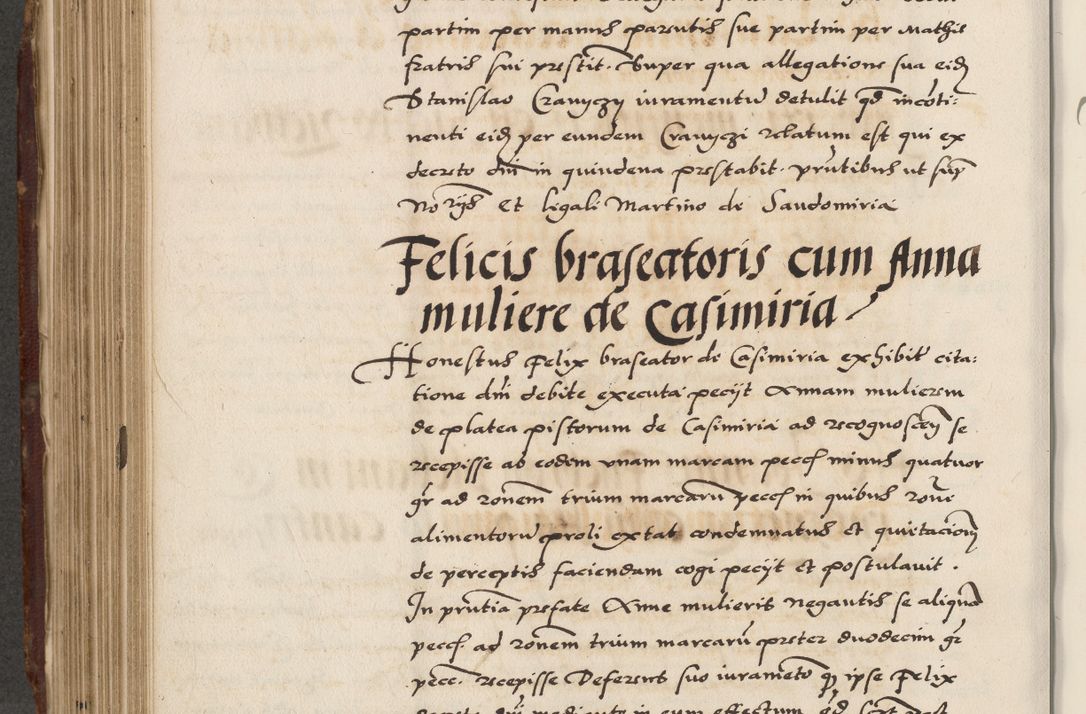 partim per manus parentis sue partim per Mathie
fratris sui prestit. Super qua allegatione sua eid
Stanislao Cranyczy iuramentu detulit qd incoti:
nenti eid per eundem Cranyczi relatum est qui ex
decreto dni in quindena prestabit. prntibus ut sup
No rijs Et legali Martino de Sandomiria
Felicis braseatoris cum Anna
muliere de Casimiria
Honestus Felix braseator de Casimiria exhibit cita:
tione dni debite executa pecijt Annam mulierem
de platea pistorum de Casimiria ad recognoscen se
recepisse ab eodem vnam marcam pecc minus quatuor
gr ad ronem trium marcaru pecc in quibus rone
alimentoru proli extat condemnatus et quietacion
de perceptis faciendam cogi pecijt et postulauit .
In prntia prefate Anne mulieris negantis se aliqua
pecc. ad ronem trium marcaru preter duodecim gr
pecc. recepisse Deferens suo iurameto q ipse Felix